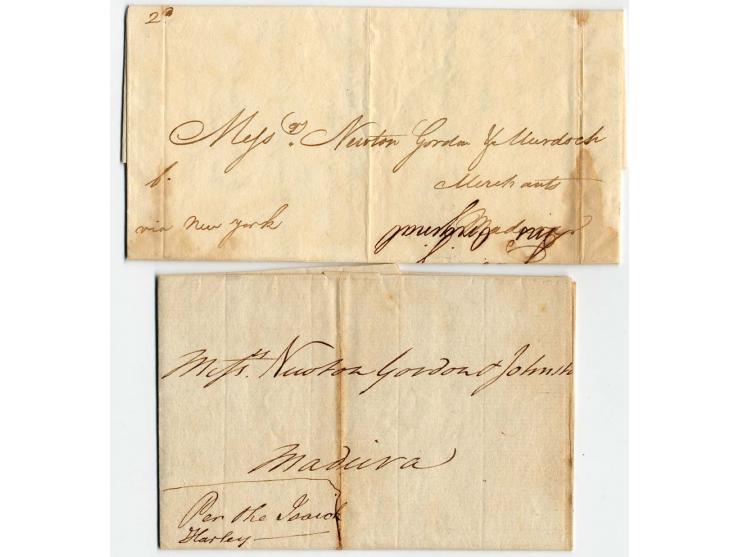 2
Mess.rs Newton Gordon & Murdoch
Merchants
via New York
Madeira
Mess.rs Newton Gordon & Johnsto
Madeira
Per the Isaick
Harley